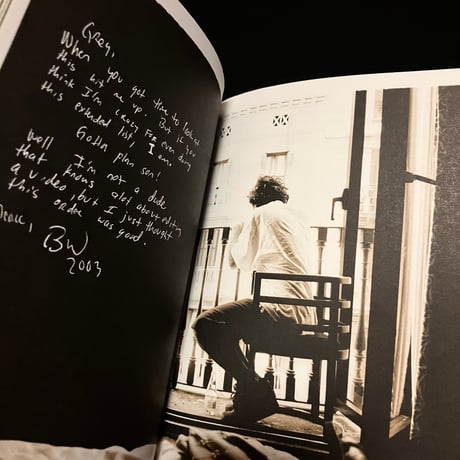 Greg,
When you get time to look at
this hit me up. But if you
think I'm crazy for even doing
this extended list, I am.
Gotta plan son!
Well I'm not a dude
that knows alot about editing
a video, but I just thought
this order was good.
Peace,
BW
2003